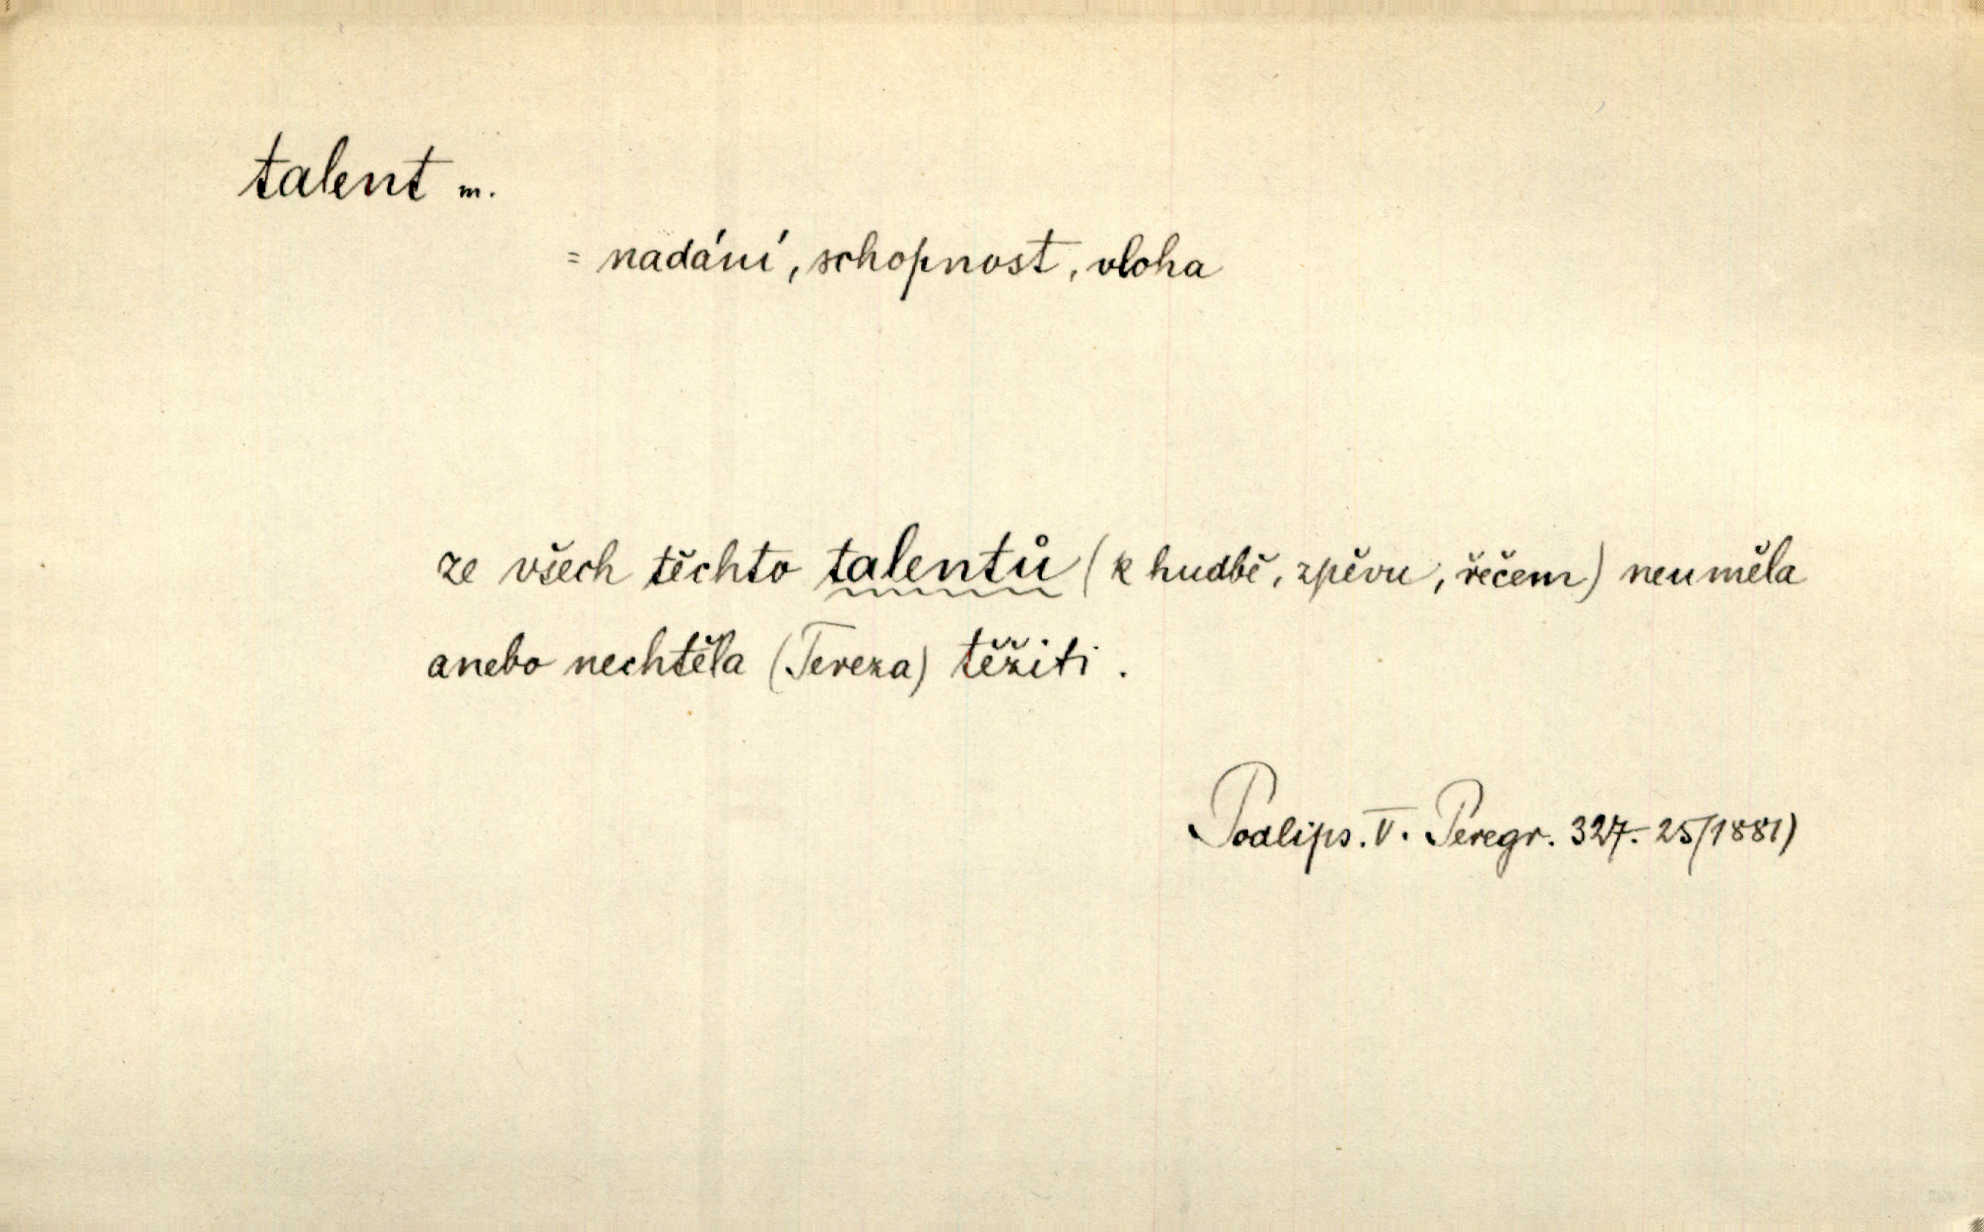 talent m.
= nadání, schopnost, vloha
ze všech těchto talentů (k hudbě, zpěvu, řečem) neuměla
anebo nechtěla (Tereza) těžiti.
Podlips. V. Peregr. 327.-25/1881)